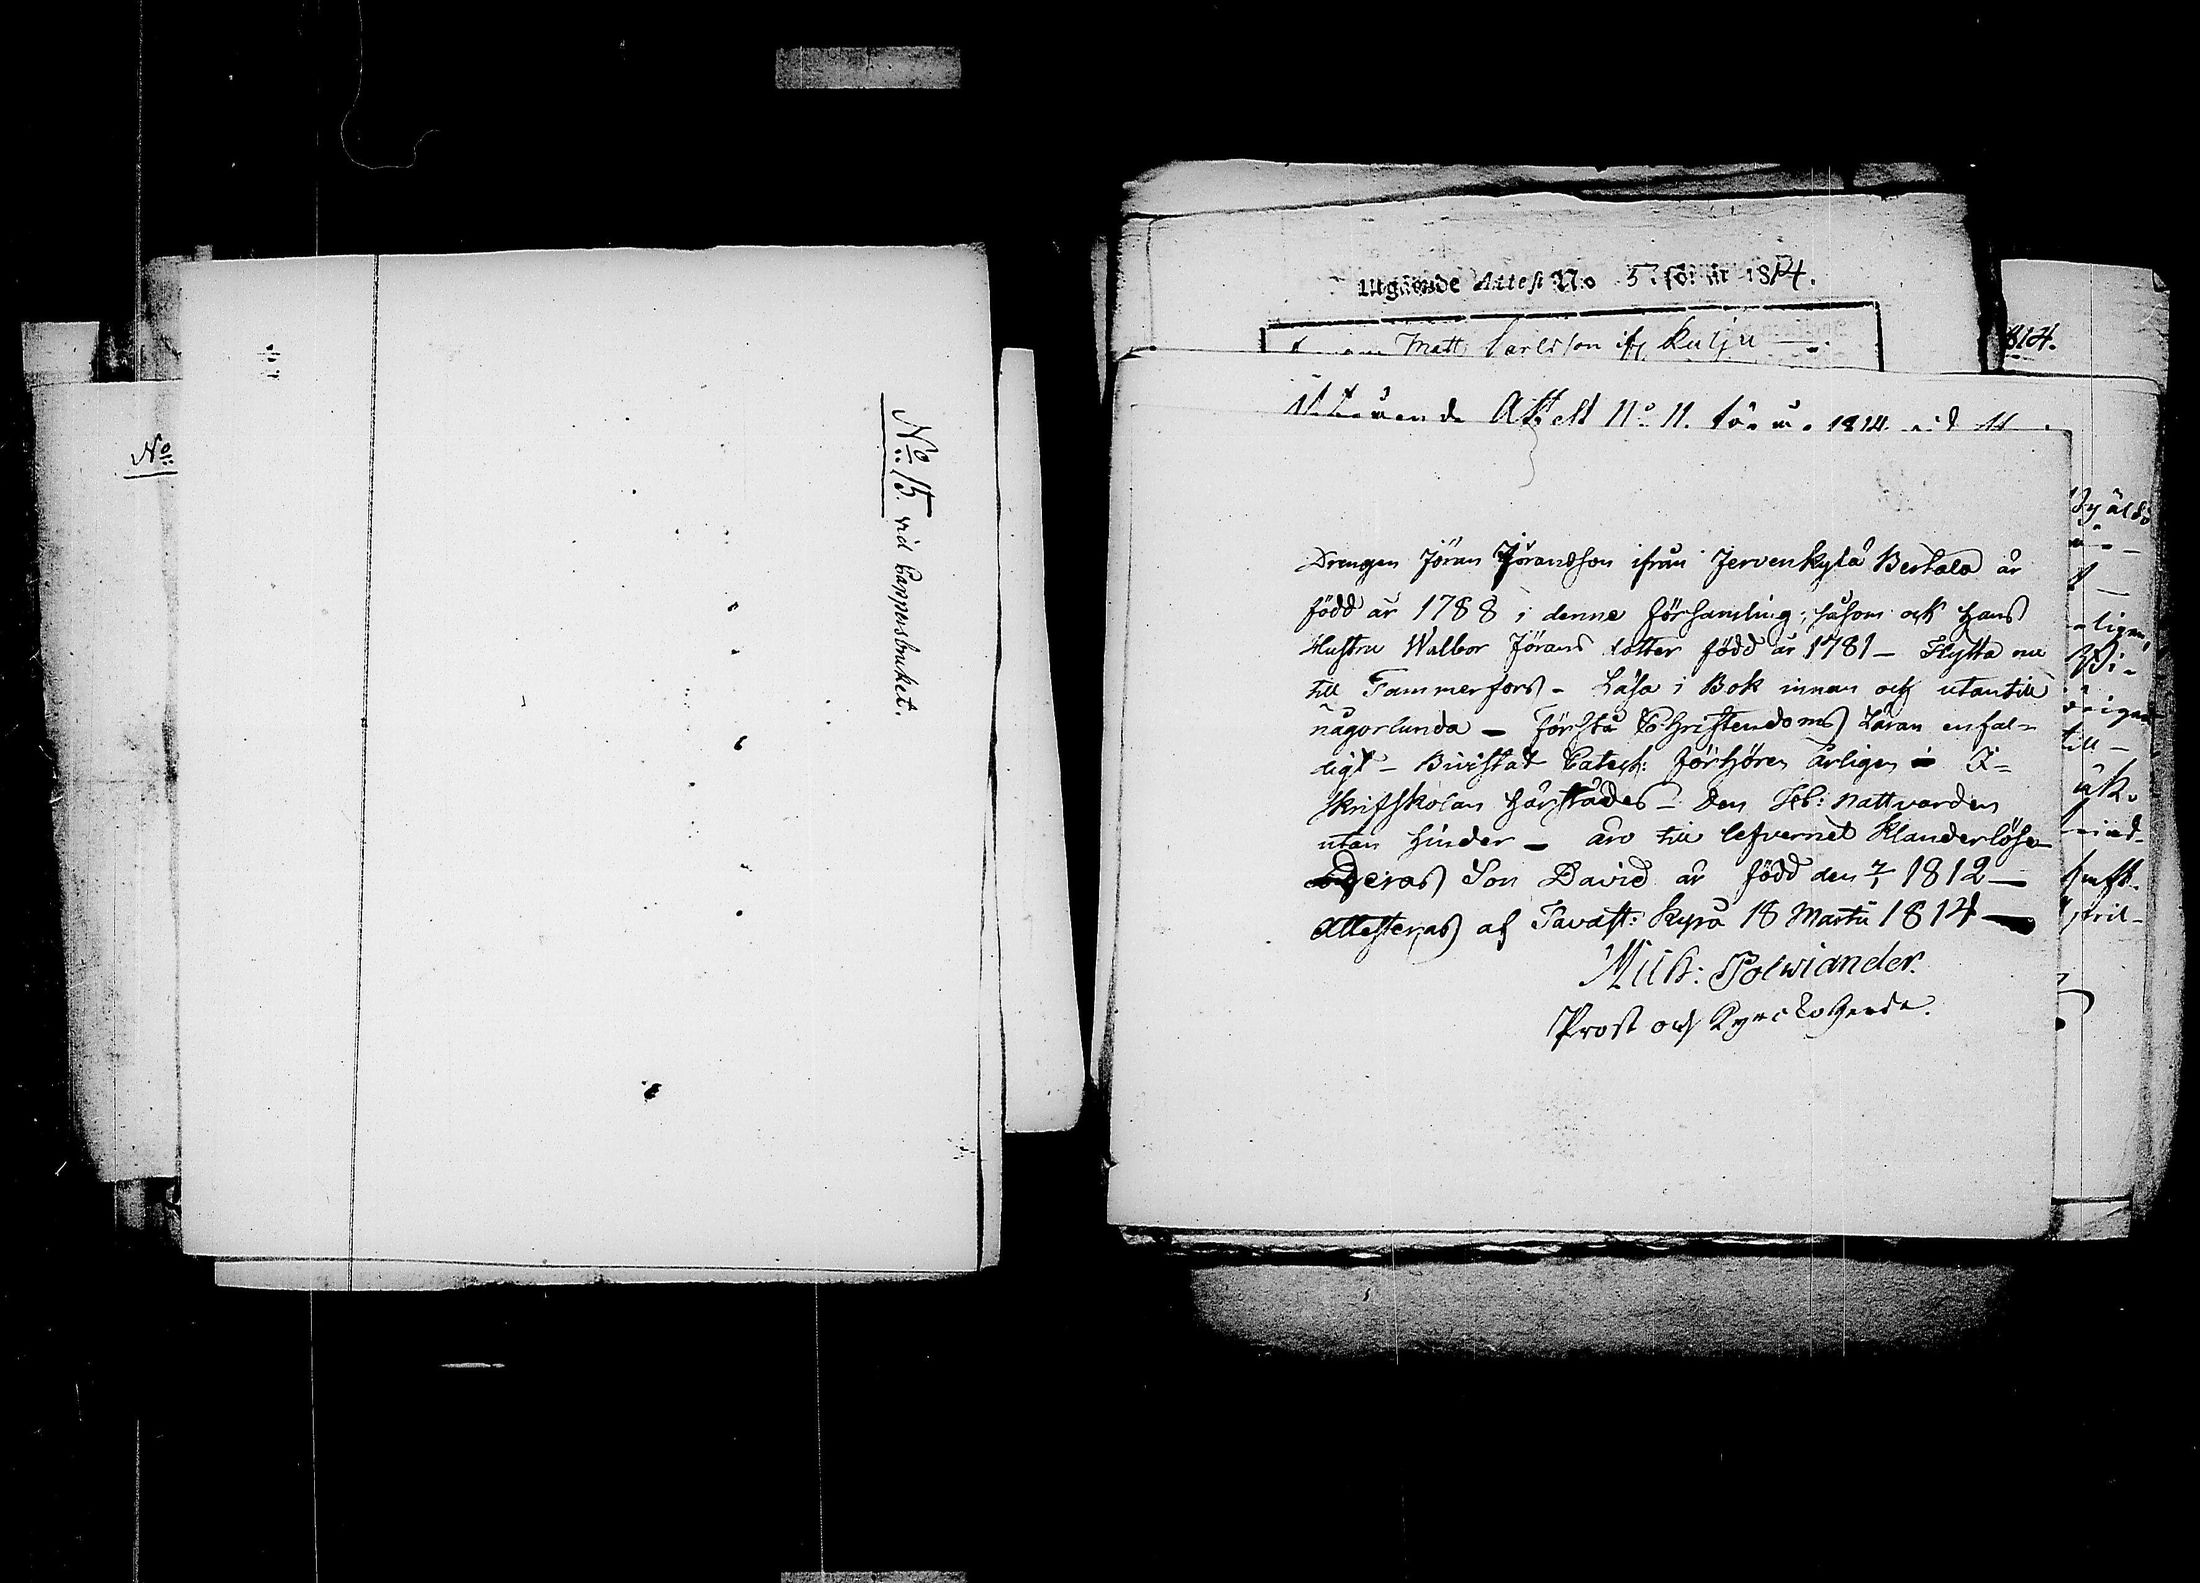 No:
No: 15. vid Pappersbruket.
Utgående Attest No 5. för år 1814.
Matts Carlsson ifr Kulju
814.
Utgående Attest No 11. för år 1814. vid
Drengen Jöran Jöransson ifrån Jervenkylä Bertala är
född år 1788 i denne Församling, såsom ock Hans
Hustru Walbor Jörans dotter född år 1781 – Flytta nu
till Tammerfors – Läsa i Bok innan och utantill
någorlunda – Förstå Christendoms Läran enfal=
digt – Bivistat Catech: förhören årligen i
Skriftskolan härstädes – Den H: Nattvarden
utan hinder – äro till lefvernet klanderlöse
Deras Son David är född den 7/1 1812 –
Attesteras af Tavast: Kyro 18 Martii 1814 –
Mich: Polviander.
Prost och Kyrckoherde.
till –